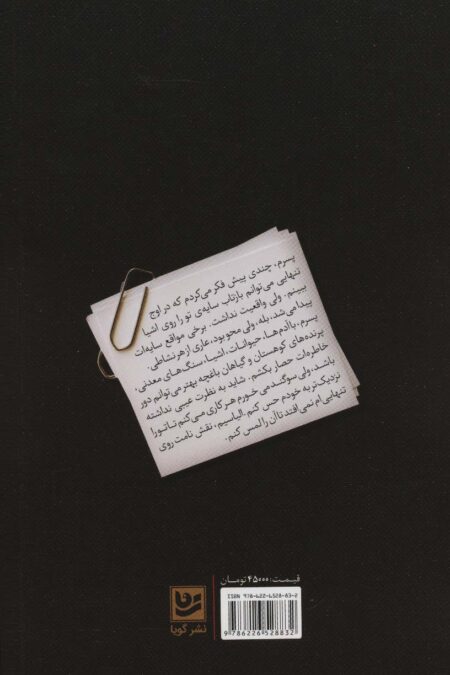 پسرم، چندی پیش فکر می‌کردم که در اوج
تنهایی می‌توانم بازتاب سایه‌ی تو را روی اشیا
ببینم. ولی واقعیت نداشت. برخی مواقع سایه‌ات
پیدا می‌شد، بله، ولی محو بود، عاری از هر نشاطی.
پسرم، با آدم‌ها، حیوانات، اشیا، سنگ‌های معدنی،
پرنده‌های کوهستان و گیاهان باغچه بهتر می‌توانم دور
خاطره‌ات حصار بکشم. شاید به نظرت عیبی نداشته
باشد، ولی سوگند می‌خورم هر کاری می‌کنم تا تو را
نزدیک‌تر به خودم حس کنم. الیاسیم، نقش نامت روی
تنهایی‌ام نمی‌افتد تا آن را لمس کنم.
قیمت: ۴۵۰۰۰ تومان
ISBN 978-622-6528-83-2
9 786226 528832
نشر گویا